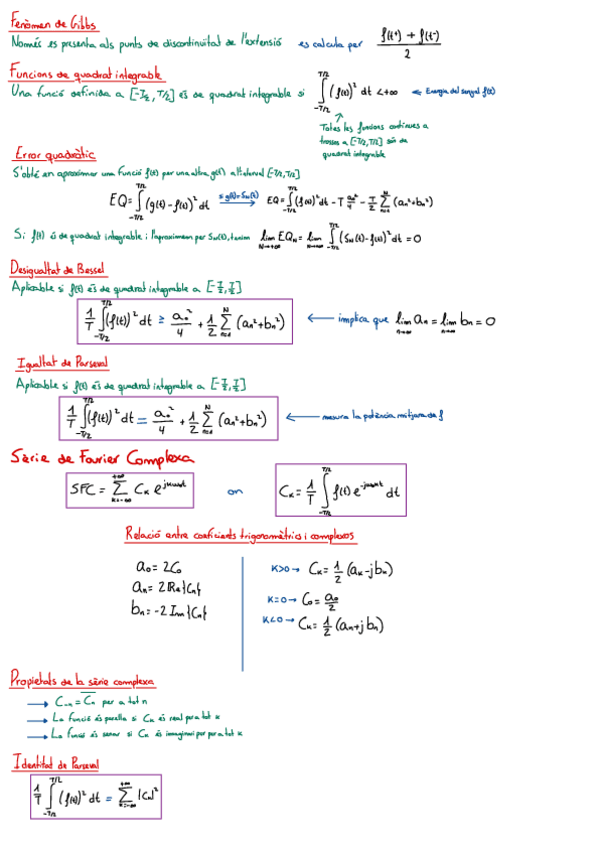 Fenòmen de Gibbs
Només es presenta als punts de discontinuïtat de l'extensió es calcula per (f(t⁺) + f(t⁻))/2
Funcions de quadrat integrable
Una funció definida a [-T/2, T/2] és de quadrat integrable si ∫_{-T/2}^{T/2} (f(t))² dt < +∞ ← Energia del senyal f(t)
Totes les funcions contínues a
trossos a [-T/2, T/2] són de
quadrat integrable
Error quadràtic
S'obté en aproximar una funció f(t) per una altra g(t) a l'interval [-T/2, T/2]
EQ = ∫_{-T/2}^{T/2} (g(t) - f(t))² dt → si g(t) = S_N(t) EQ = ∫_{-T/2}^{T/2} (f(t))² dt - T a₀²/4 - T/2 ∑_{n=1}^{N} (aₙ² + bₙ²)
Si f(t) és de quadrat integrable i l'aproximem per S_N(t), tenim lim_{N→+∞} EQ_N = lim_{N→+∞} ∫_{-T/2}^{T/2} (S_N(t) - f(t))² dt = 0
Desigualtat de Bessel
Aplicable si f(t) és de quadrat integrable a [-T/2, T/2]
1/T ∫_{-T/2}^{T/2} (f(t))² dt ≥ a₀²/4 + 1/2 ∑_{n=1}^{N} (aₙ² + bₙ²) ← implica que lim_{n→∞} aₙ = lim_{n→∞} bₙ = 0
Igualtat de Parseval
Aplicable si f(t) és de quadrat integrable a [-T/2, T/2]
1/T ∫_{-T/2}^{T/2} (f(t))² dt = a₀²/4 + 1/2 ∑_{n=1}^{N} (aₙ² + bₙ²) ← mesura la potència mitjana de f
Sèrie de Fourier Complexa
SFC = ∑_{k=-∞}^{+∞} C_k e^{jkω₀t} on C_k = 1/T ∫_{-T/2}^{T/2} f(t) e^{-jkω₀t} dt
Relació entre coeficients trigonomètrics i complexos
a₀ = 2C₀
aₙ = 2 Re{Cₙ}
bₙ = -2 Im{Cₙ}
K>0 → C_k = 1/2 (a_k - jb_k)
K=0 → C₀ = a₀/2
K<0 → C_k = 1/2 (aₙ + jbₙ)
Propietats de la sèrie complexa
→ C₋ₙ = C̅ₙ per a tot n
→ La funció és parella si C_k és real per a tot k
→ La funció és senar si C_k és imaginari pur per a tot k
Identitat de Parseval
1/T ∫_{-T/2}^{T/2} (f(t))² dt = ∑_{k=-∞}^{+∞} |Cₙ|²